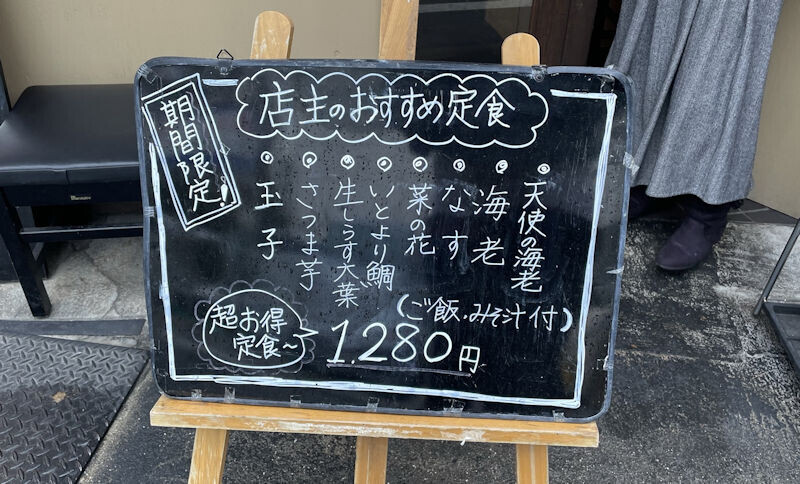 店主のおすすめ定食
期間限定!
天使の海老
海老
なす
菜の花
いとより鯛
生しらす大葉
さつま芋
玉子
(ご飯・みそ汁付)
超お得
定食~
1.280円